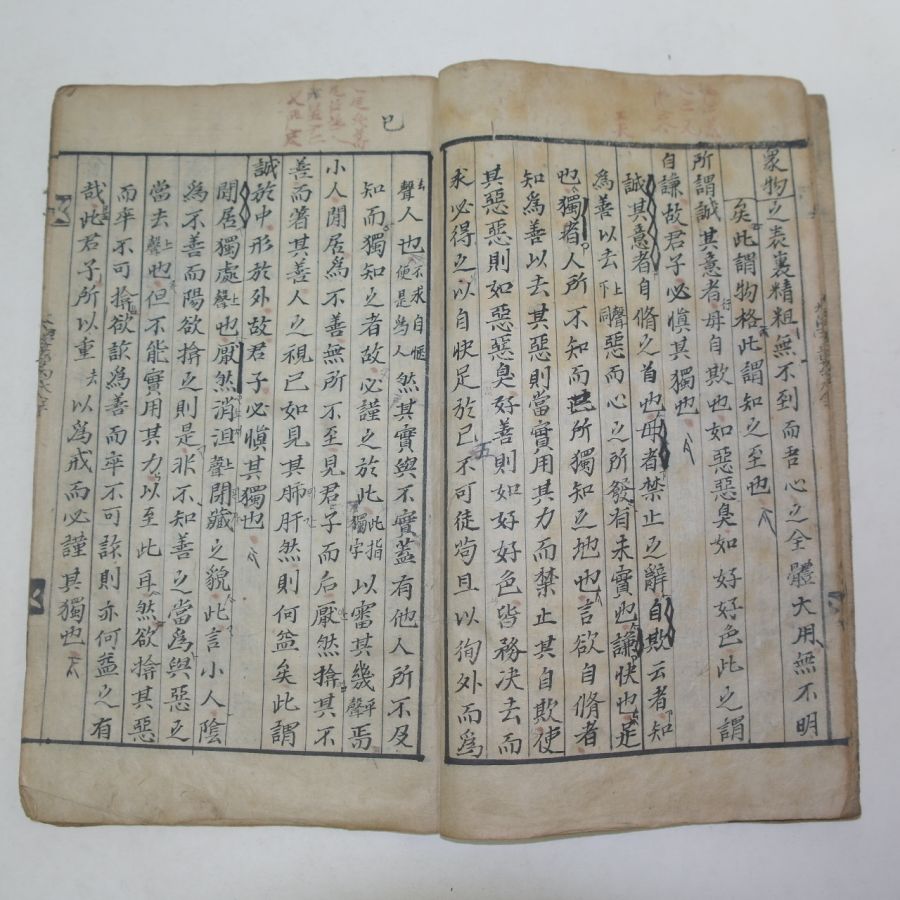 衆物之表裏精粗無不到而吾心之全體大用無不明
矣此謂物格此謂知之至也
所謂誠其意者毋自欺也如惡惡臭如好好色此之謂
自謙故君子必愼其獨也
誠其意者自脩之首也毋者禁止之辭自欺云者知
爲善以去上聲下同惡而心之所發有未實也謙快也足
也獨者人所不知而己所獨知之地也言欲自脩者
知爲善以去其惡則當實用其力而禁止其自欺使
其惡惡則如惡惡臭好善則如好好色皆務决去而
求必得之以自快足於己不可徒苟且以徇外而爲
五
巳
去聲人也不求自慊便是爲人然其實與不實蓋有他人所不及
知而獨知之者故必謹之於此此指獨字以審其幾平聲焉
小人閒居爲不善無所不至見君子而后厭然揜其不
善而著其善人之視己如見其肺肝然則何益矣此謂
誠於中形於外故君子必愼其獨也
閒居獨處上聲也厭然消沮上聲閉藏之貌此言小人陰
爲不善而陽欲揜之則是非不知善之當爲與惡之
當去上聲也但不能實用其力以至此耳然欲揜其惡
而卒不可揜欲詐爲善而卒不可詐則亦何益之有
哉此君子所以重去以爲戒而必謹其獨也